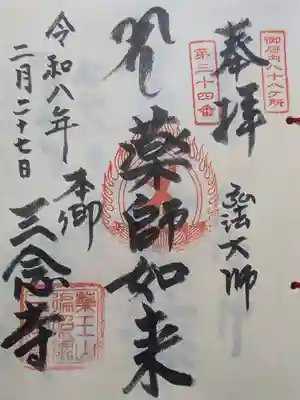 御府内八十八ヶ所
奉拝
第三十四番
弘法大師
薬師如来
本郷
三念寺
令和八年
二月二十七日
薬王山
遍照院